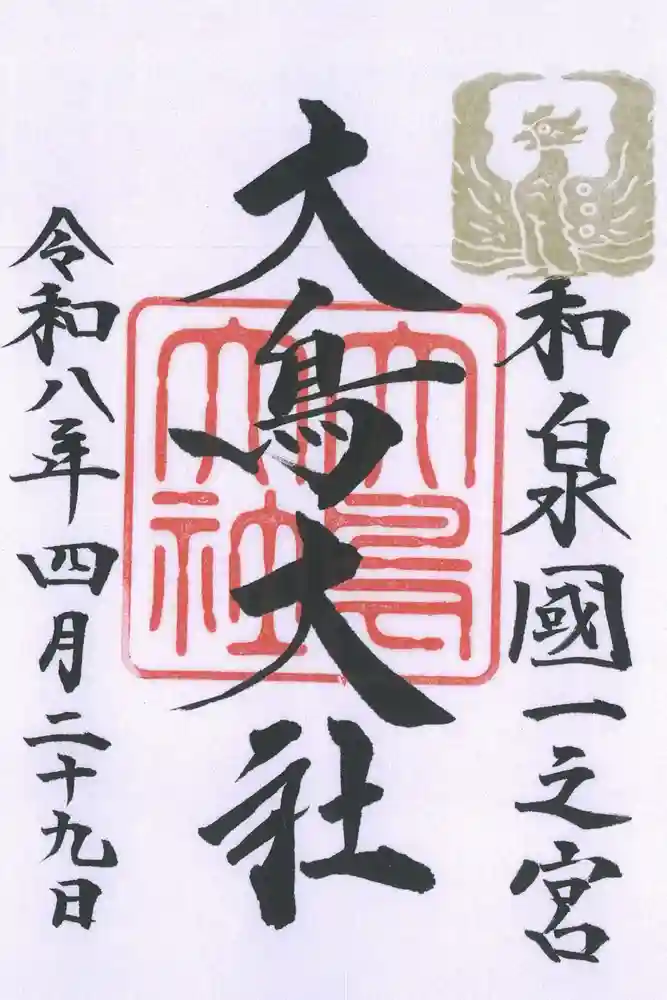 和泉國一之宮
大鳥大社
大鳥大社
令和八年四月二十九日